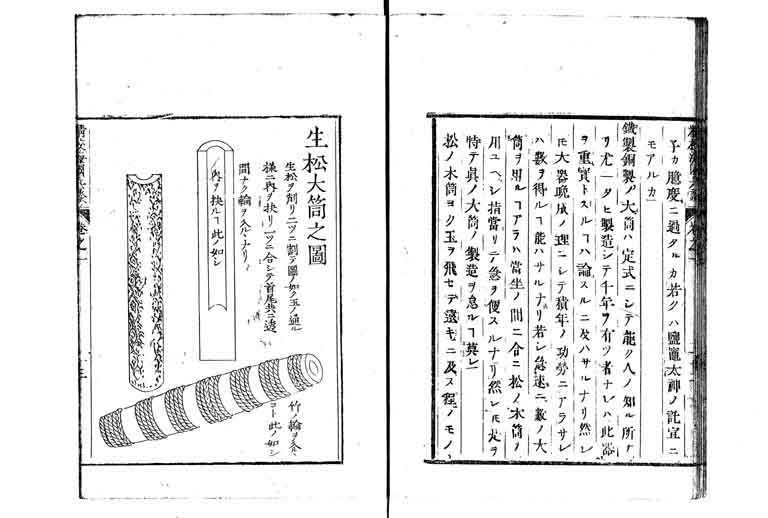 予カ臆度ニ過タルカ若クハ鹽竈太神ノ託宣ニ
モアルカ
鐵製銅製ノ大筒ハ定式ニシテ能ク人ノ知ル所ナ
リ尤一タヒ製造シテ千年ヲ有ツ者ナレハ此器
ヲ重寳トスルヿハ論スルニ及ハサルナリ然レ
モ大器晩成ノ理ニシテ積年ノ功勞ニアラサレ
ハ數ヲ得ルヿ能ハサルナリ若シ急速ニ數ノ大
筒ヲ用ルヿアラハ當坐ノ間ニ合ニ松ノ木筒ヲ
用ユヘシ指當リテ急ヲ便スルナリ然レモ丈ヲ
特テ眞ノ大筒ノ製造ヲ怠ルヿ莫レ
松ノ木筒ヨク玉ヲ飛セテ遠キニ及ス程ノモノ
生松大筒之圖
生松ヲ削リ二ツニ割テ圖ノ如ク玉ノ通ル
樣ニ内ヲ抉リ一ツニ合シテ首尾共ニ透
間ナク輪ヲ入ルヽナリ
内ヲ抉ルヿ此ノ如シ
竹ノ輪ヲ入ルヽ
コト此ノ如シ
卷之一